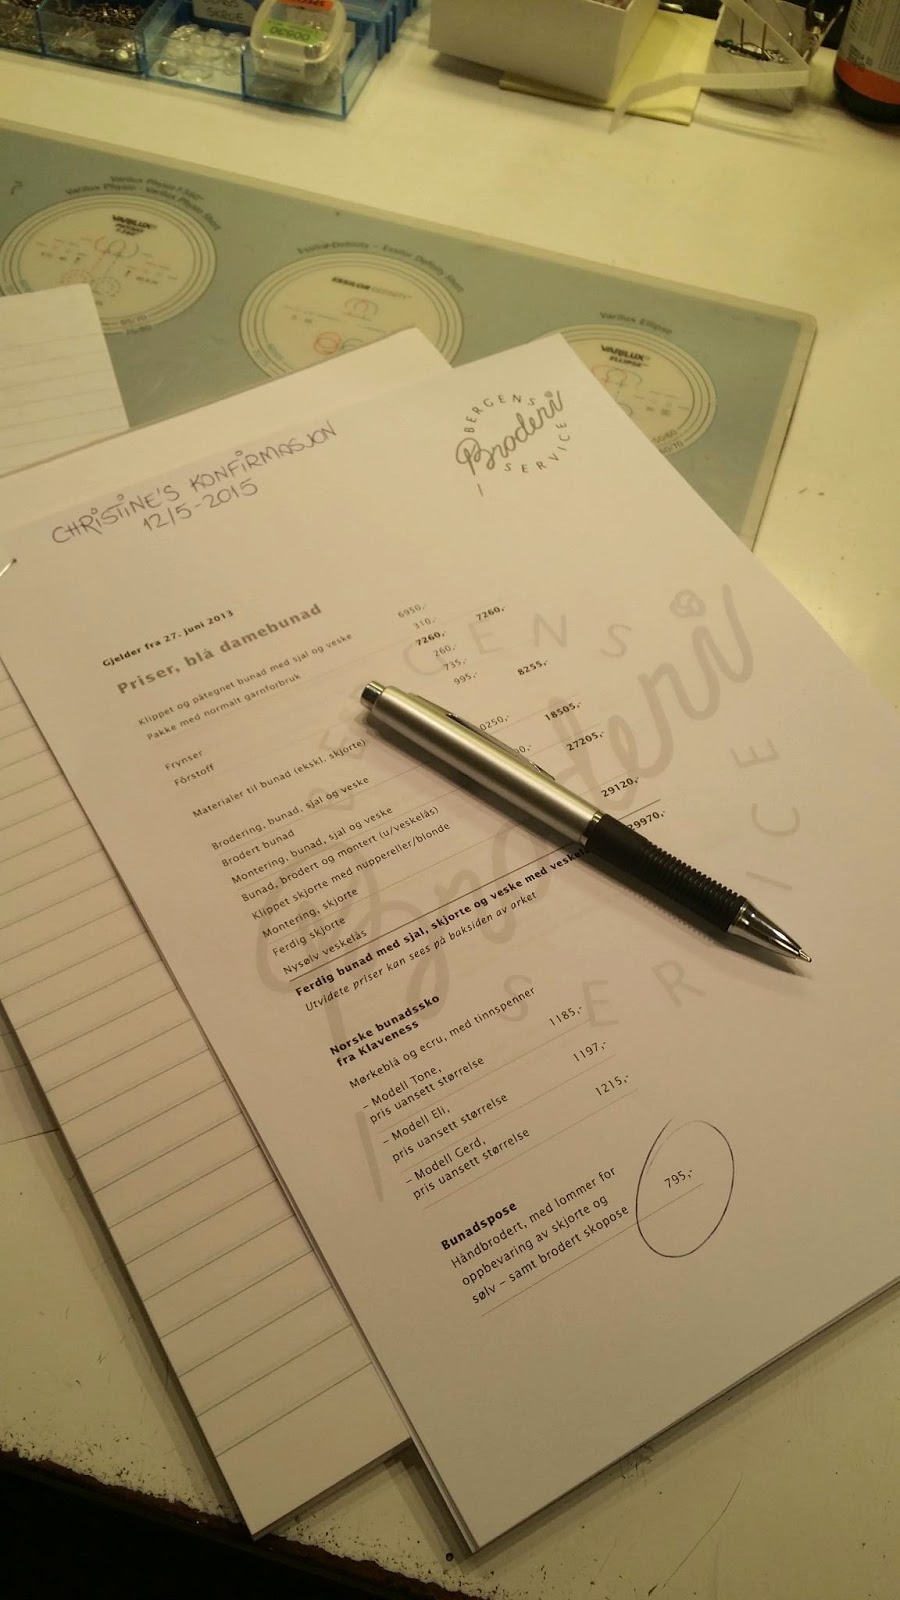 SKRUE
00530
Varilux Physio f-360°
Varilux Physio - Varilux Physio Short
VARILUX
PHYSIO
f-360°
Essilor Definity - Essilor Definity Short
ESSILOR DEFINITY
Varilux Ellipse
VARILUX
ELLIPSE
CHRISTINE'S KONFIRMASJON
12/5-2015
BERGENS
Broderi
SERVICE
Gjelder fra 27. juni 2013
Priser, blå damebunad
Klippet og påtegnet bunad med sjal og veske 6950,-
Pakke med normalt garnforbruk 310,-
7260,- 7260,-
Frynser 260,-
Fôrstoff 735,-
995,-
Materialer til bunad (ekskl. skjorte) 8255,-
Brodering, bunad, sjal og veske 0250,-
Brodert bunad 18505,-
Montering, bunad, sjal og veske
Bunad, brodert og montert (u/veskelås) 27205,-
Klippet skjorte med nuppereller/blonde
Montering, skjorte
Ferdig skjorte 29120,-
Nysølv veskelås
Ferdig bunad med sjal, skjorte og veske med veskel 29970,-
Utvidete priser kan sees på baksiden av arket
Norske bunadssko
fra Klaveness
Mørkeblå og ecru, med tinnspenner
– Modell Tone,
pris uansett størrelse 1185,-
– Modell Eli,
pris uansett størrelse 1197,-
– Modell Gerd,
pris uansett størrelse 1215,-
Bunadspose
Håndbrodert, med lommer for
oppbevaring av skjorte og
sølv – samt brodert skopose 795,-
BERGENS
Broderi
SERVICE